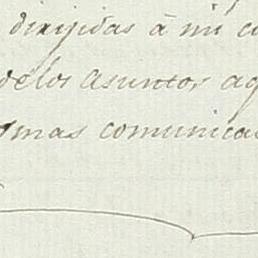 dirijidas à mi
de los asuntos
mas comunica